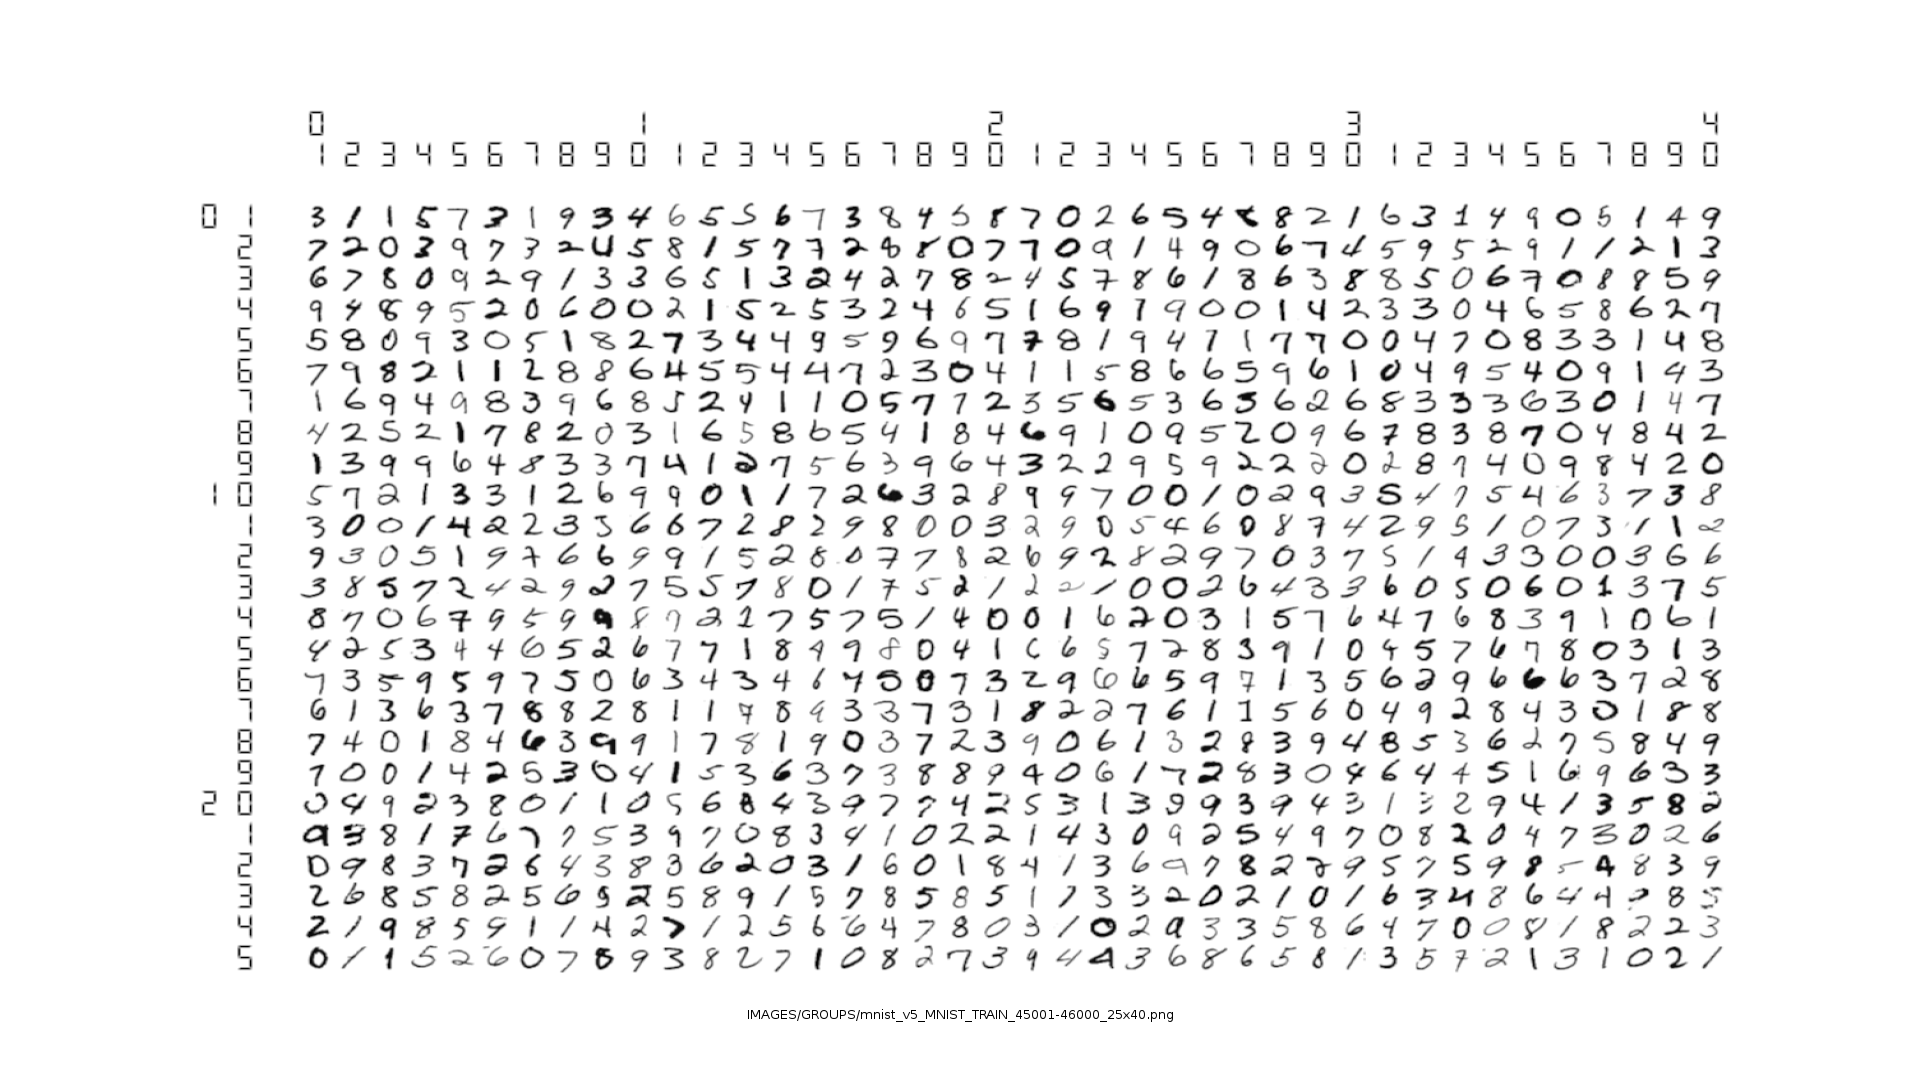 0 1 2 3 4
1 2 3 4 5 6 7 8 9 0 1 2 3 4 5 6 7 8 9 0 1 2 3 4 5 6 7 8 9 0 1 2 3 4 5 6 7 8 9 0
0 1 3 1 1 5 7 3 1 9 3 4 6 5 5 6 7 3 8 4 5 8 7 0 2 6 5 4 8 8 2 1 6 3 1 4 9 0 5 1 4 9
2 7 2 0 3 9 7 3 2 4 5 8 1 5 7 7 2 8 8 0 7 7 0 9 1 4 9 0 6 7 4 5 9 5 2 9 1 1 2 1 3
3 6 7 8 0 9 2 9 1 3 3 6 5 1 3 2 4 2 7 8 2 4 5 7 8 6 1 8 6 3 8 8 5 0 6 7 0 8 8 5 9
4 9 4 8 9 5 2 0 6 0 0 2 1 5 2 5 3 2 4 6 5 1 6 9 1 9 0 0 1 4 2 3 3 0 4 6 5 8 6 2 7
5 5 8 0 9 3 0 5 1 8 2 7 3 4 4 9 5 9 6 9 7 7 8 1 9 4 7 1 7 7 0 0 4 7 0 8 3 3 1 4 8
6 7 9 8 2 1 1 2 8 8 6 4 5 5 4 4 7 2 3 0 4 1 1 5 8 6 6 5 9 6 1 0 4 9 5 4 0 9 1 4 3
7 1 6 9 4 9 8 3 9 6 8 5 2 4 1 1 0 5 7 7 2 3 5 6 5 3 6 5 6 2 6 8 3 3 3 6 3 0 1 4 7
8 4 2 5 2 1 7 8 2 0 3 1 6 5 8 6 5 4 1 8 4 6 9 1 0 9 5 2 0 9 6 7 8 3 8 7 0 4 8 4 2
9 1 3 9 9 6 4 8 3 3 7 4 1 2 7 5 6 3 9 6 4 3 2 2 9 5 9 2 2 2 0 2 8 7 4 0 9 8 4 2 0
1 0 5 7 2 1 3 3 1 2 6 9 9 0 1 1 7 2 6 3 2 8 9 9 7 0 0 1 0 2 9 3 5 4 7 5 4 6 3 7 3 8
1 3 0 0 1 4 2 2 3 5 6 6 7 2 8 2 9 8 0 0 3 2 9 0 5 4 6 0 8 7 4 2 9 5 1 0 7 3 1 1 2
2 9 3 0 5 1 9 7 6 6 9 9 1 5 2 8 0 7 7 8 2 6 9 2 8 2 9 7 0 3 7 5 1 4 3 3 0 0 3 6 6
3 3 8 5 7 2 4 2 9 2 7 5 5 7 8 0 1 7 5 2 1 2 2 1 0 0 2 6 4 3 3 6 0 5 0 6 0 1 3 7 5
4 8 7 0 6 7 9 5 9 9 8 7 2 1 7 5 7 5 1 4 0 0 1 6 2 0 3 1 5 7 6 4 7 6 8 3 9 1 0 6 1
5 4 2 5 3 4 4 6 5 2 6 7 7 1 8 9 9 8 0 4 1 6 6 5 7 2 8 3 9 1 0 4 5 7 6 7 8 0 3 1 3
6 7 3 5 9 5 9 7 5 0 6 3 4 3 4 6 4 5 0 7 3 2 9 6 6 5 9 7 1 3 5 6 2 9 6 6 6 3 7 2 8
7 6 1 3 6 3 7 8 8 2 8 1 1 9 8 9 3 3 7 3 1 8 2 2 7 6 1 1 5 6 0 4 9 2 8 4 3 0 1 8 8
8 7 4 0 1 8 4 6 3 9 9 1 7 8 1 9 0 3 7 2 3 9 0 6 1 3 2 8 3 9 4 8 5 3 6 2 7 5 8 4 9
9 7 0 0 1 4 2 5 3 0 4 1 5 3 6 3 7 3 8 8 9 4 0 6 1 7 2 8 3 0 4 6 4 4 5 1 6 9 6 3 3
2 0 0 4 9 2 3 8 0 1 1 0 5 6 8 4 3 9 7 7 4 2 5 3 1 3 9 9 3 9 4 3 1 3 2 9 4 1 3 5 8 2
1 9 3 8 1 7 6 7 7 5 3 9 7 0 8 3 4 1 0 2 2 1 4 3 0 9 2 5 4 9 7 0 8 2 0 4 7 3 0 2 6
2 0 9 8 3 7 2 6 4 3 8 3 6 2 0 3 1 6 0 1 8 4 1 3 6 9 7 8 2 7 9 5 7 5 9 8 5 4 8 3 9
3 2 6 8 5 8 2 5 6 9 2 5 8 9 1 5 7 8 5 8 5 1 7 3 3 2 0 2 1 0 1 6 3 4 8 6 4 4 2 8 5
4 2 1 9 8 5 9 1 1 4 2 7 1 2 5 6 6 4 7 8 0 3 1 0 2 9 3 3 5 8 6 4 7 0 0 8 1 8 2 2 3
5 0 1 1 5 2 6 0 7 8 9 3 8 2 7 1 0 8 2 7 3 9 4 4 3 6 8 6 5 8 1 3 5 7 2 1 3 1 0 2 1
IMAGES/GROUPS/mnist_v5_MNIST_TRAIN_45001-46000_25x40.png